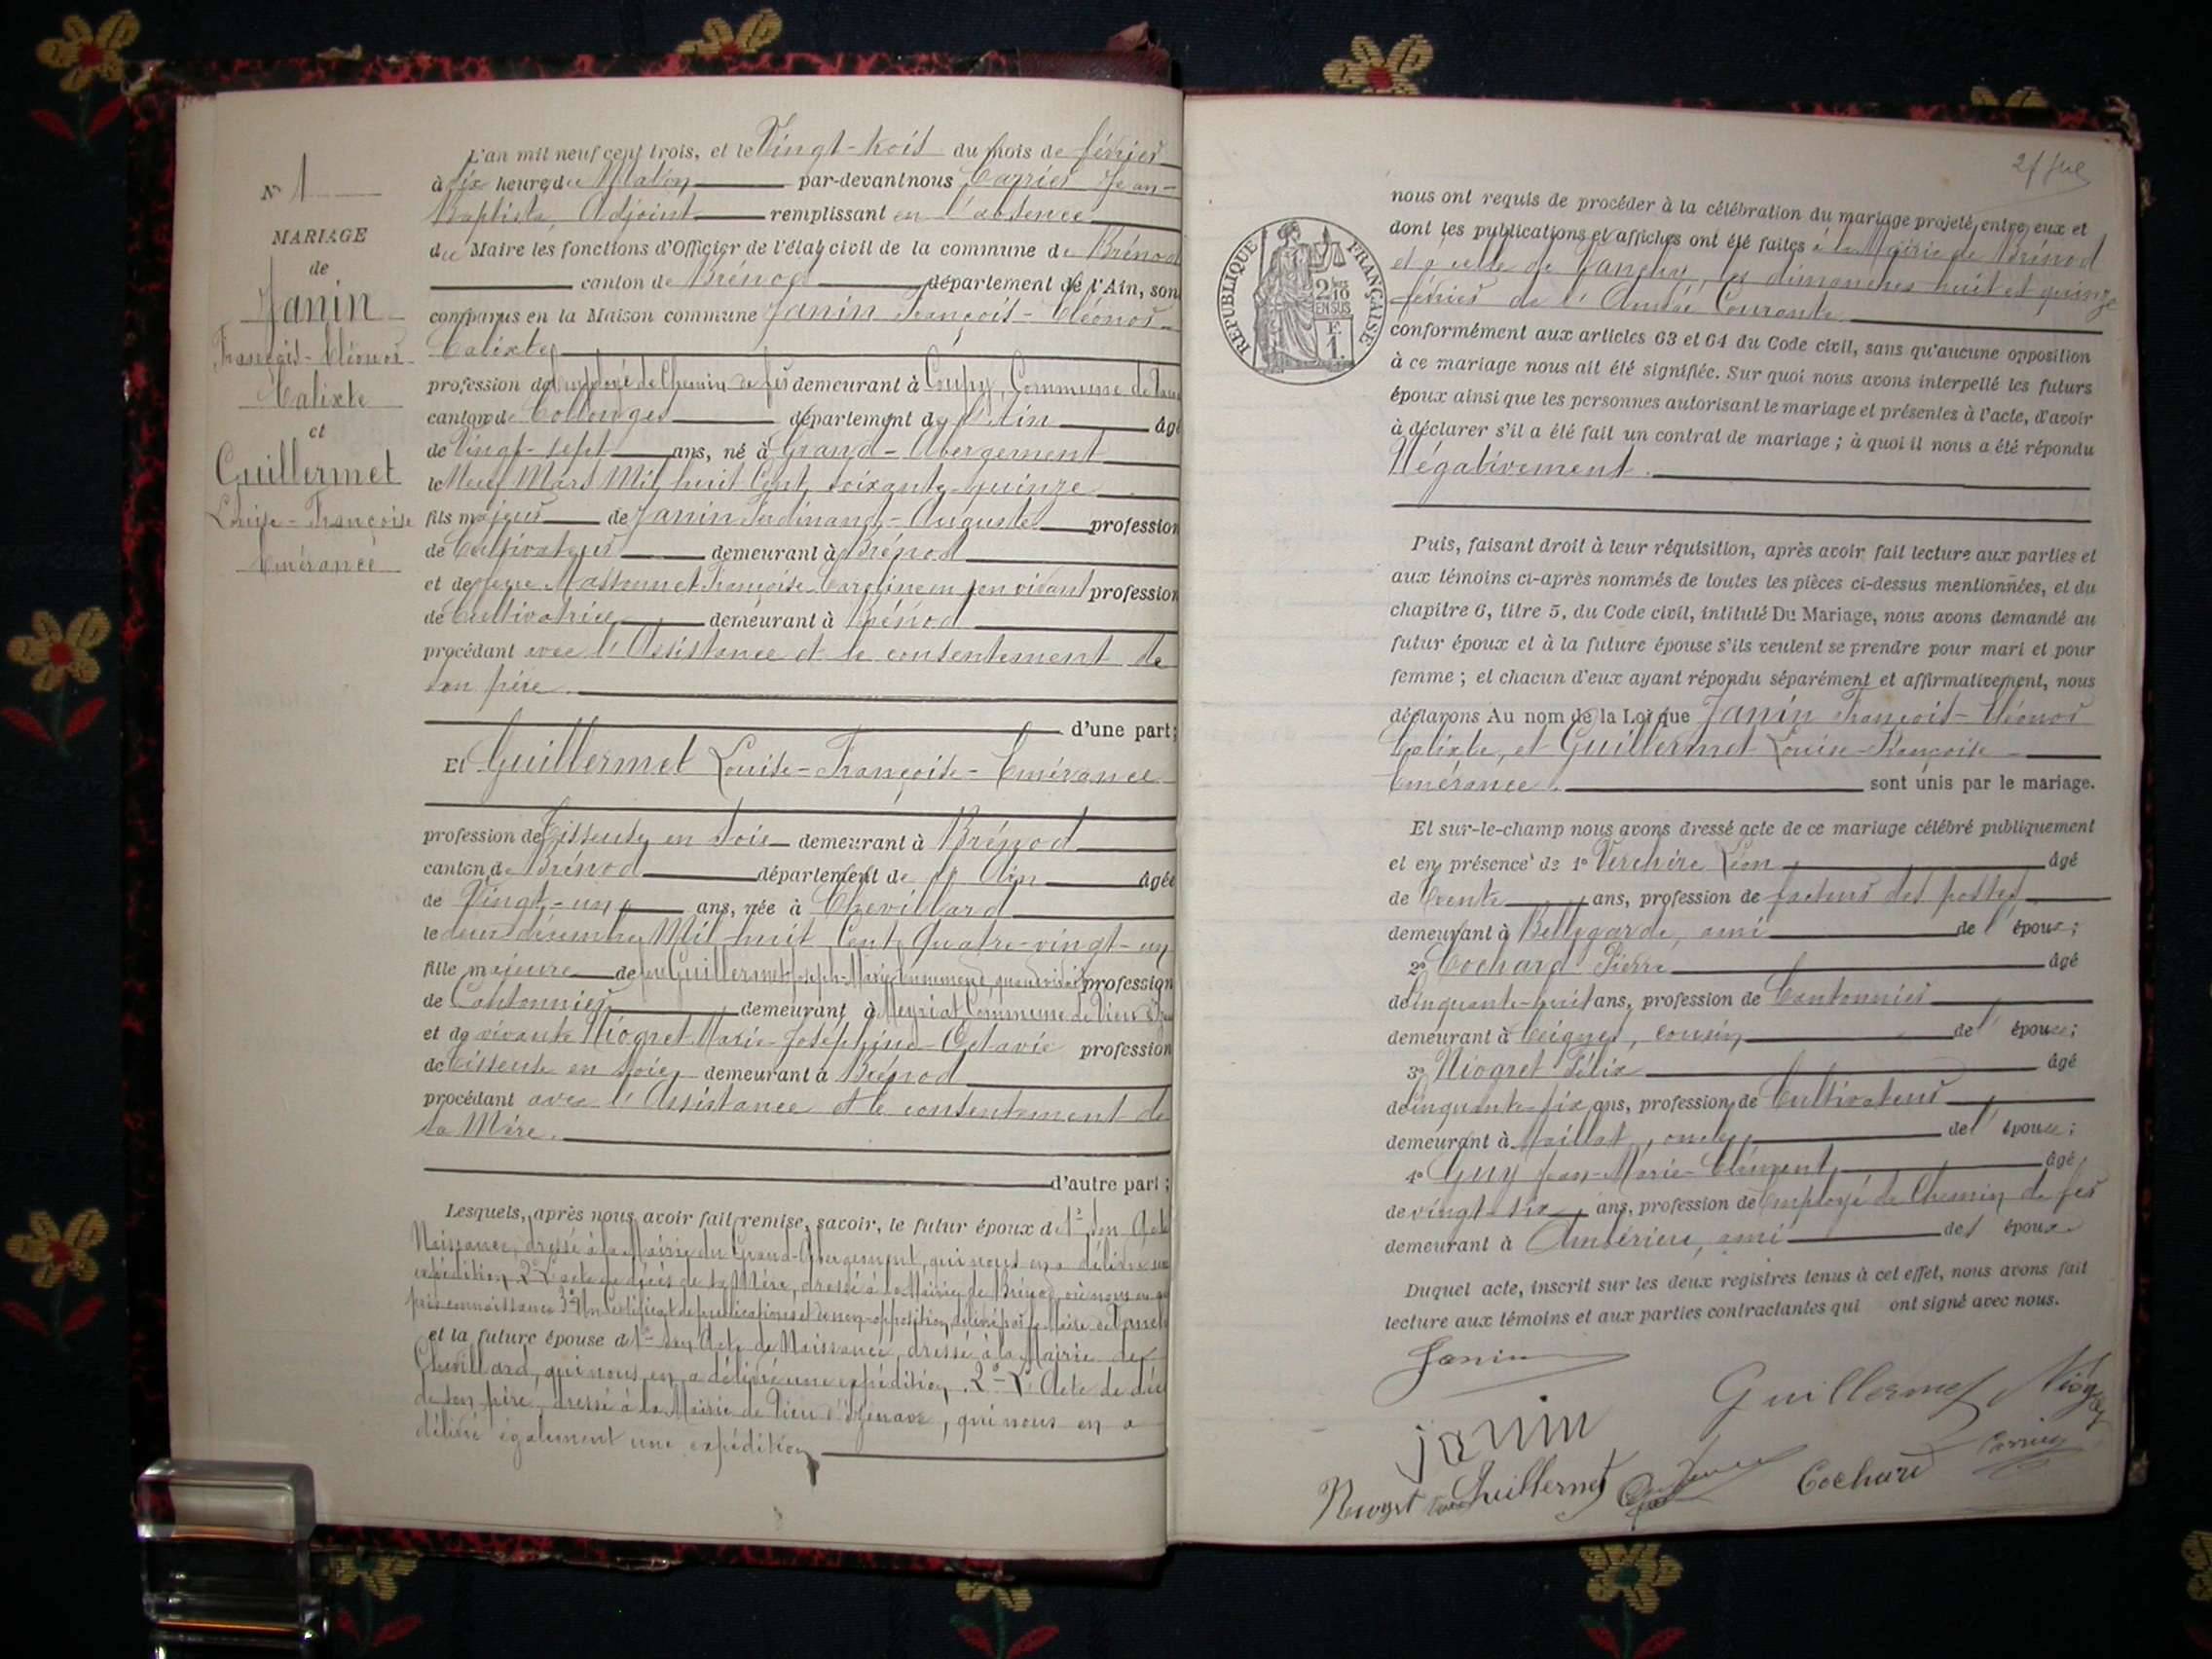 N° 1
MARIAGE
de
Janin
François-Cléonor
Calixte
et
Guillermet
Louise-Françoise
Emérance
L'an mil neuf cent trois, et le Vingt-trois du mois de février
à dix heures du Matin par-devant nous Carrier Jean-
Baptiste, Adjoint remplissant en l'absence
du Maire les fonctions d'Officier de l'état civil de la commune de Brénod
canton de Brénod département de l'Ain, sont
comparus en la Maison commune Janin François-Cléonor-
Calixte
profession d'Employé de Chemin de fer demeurant à Coupy, Commune de
canton de Collonges département de l'Ain âgé
de Vingt-sept ans, né à Grand-Abergement
le Neuf Mars Mil huit Cent soixante-quinze
fils majeur de Janin Ferdinand-Auguste profession
de Cultivateur demeurant à Brénod
et de feue Massonnet Françoise-Caroline en son vivant profession
de Cultivatrice demeurant à Brénod
procédant avec l'Assistance et le consentement de
son père.
d'une part;
Et Guillermet Louise-Françoise-Emérance
profession de Tisseuse en soie demeurant à Brénod
canton de Brénod département de l'Ain âgée
de Vingt-un ans, née à Chevillard
le deux décembre Mil huit Cent Quatre-vingt-un
fille majeure de feu Guillermet Joseph-Marie profession
de Cantonnier demeurant à Meyriat Commune de Vieu d'
et de vivante Niogret Marie-Joséphine-Octavie profession
de tisseuse en soie demeurant à Brénod
procédant avec l'Assistance et le consentement de
sa Mère.
d'autre part;
Lesquels, après nous avoir fait remise, savoir, le futur époux de 1° Son Acte
Naissance, dressé à la Mairie du Grand-Abergement, qui nous en a délivré une
expédition, 2° L'acte de décès de sa Mère, dressé à la Mairie de Brénod, où nous en avons
pris connaissance 3° Un Certificat de publications et de non-opposition, délivré par le Maire de
et la future épouse de 1° Son Acte de Naissance, dressé à la Mairie de
Chevillard, qui nous en a délivré une expédition. 2° L'Acte de décès
de son père, dressé à la Mairie de Vieu d'Izenave, qui nous en a
délivré également une expédition
nous ont requis de procéder à la célébration du mariage projeté entre eux et
dont les publications et affiches ont été faites à la Mairie de Brénod
et à celle de les dimanches huit et quinze
février de l'Année Courante
conformément aux articles 63 et 64 du Code civil, sans qu'aucune opposition
à ce mariage nous ait été signifiée. Sur quoi nous avons interpellé les futurs
époux ainsi que les personnes autorisant le mariage et présentes à l'acte, d'avoir
à déclarer s'il a été fait un contrat de mariage; à quoi il nous a été répondu
Négativement.
RÉPUBLIQUE FRANÇAISE
2/10
EN SUS
F.
1.
Puis, faisant droit à leur réquisition, après avoir fait lecture aux parties et
aux témoins ci-après nommés de toutes les pièces ci-dessus mentionnées, et du
chapitre 6, titre 5, du Code civil, intitulé Du Mariage, nous avons demandé au
futur époux et à la future épouse s'ils veulent se prendre pour mari et pour
femme; et chacun d'eux ayant répondu séparément et affirmativement, nous
déclarons Au nom de la Loi que Janin François-Cléonor
Calixte, et Guillermet Louise-Françoise-
Emérance. sont unis par le mariage.
Et sur-le-champ nous avons dressé acte de ce mariage célébré publiquement
et en présence de 1° Verchère Léon âgé
de trente ans, profession de facteur des postes
demeurant à Bellegarde, ami de l'époux;
2° Cochard Pierre âgé
de Cinquante-huit ans, profession de Cantonnier
demeurant à Ceignes, cousin de l'épouse;
3° Niogret Félix âgé
de Cinquante-six ans, profession de Cultivateur
demeurant à Maillat, oncle de l'épouse;
4° Guy Jean-Marie-Clément âgé
de vingt-six ans, profession de Employé de Chemin de fer
demeurant à Ambérieu, ami de l'époux
Duquel acte, inscrit sur les deux registres tenus à cet effet, nous avons fait
lecture aux témoins et aux parties contractantes qui ont signé avec nous.
Janin
Guillermet Niogret
janin
Niogret Guillermet Cochard Carrier